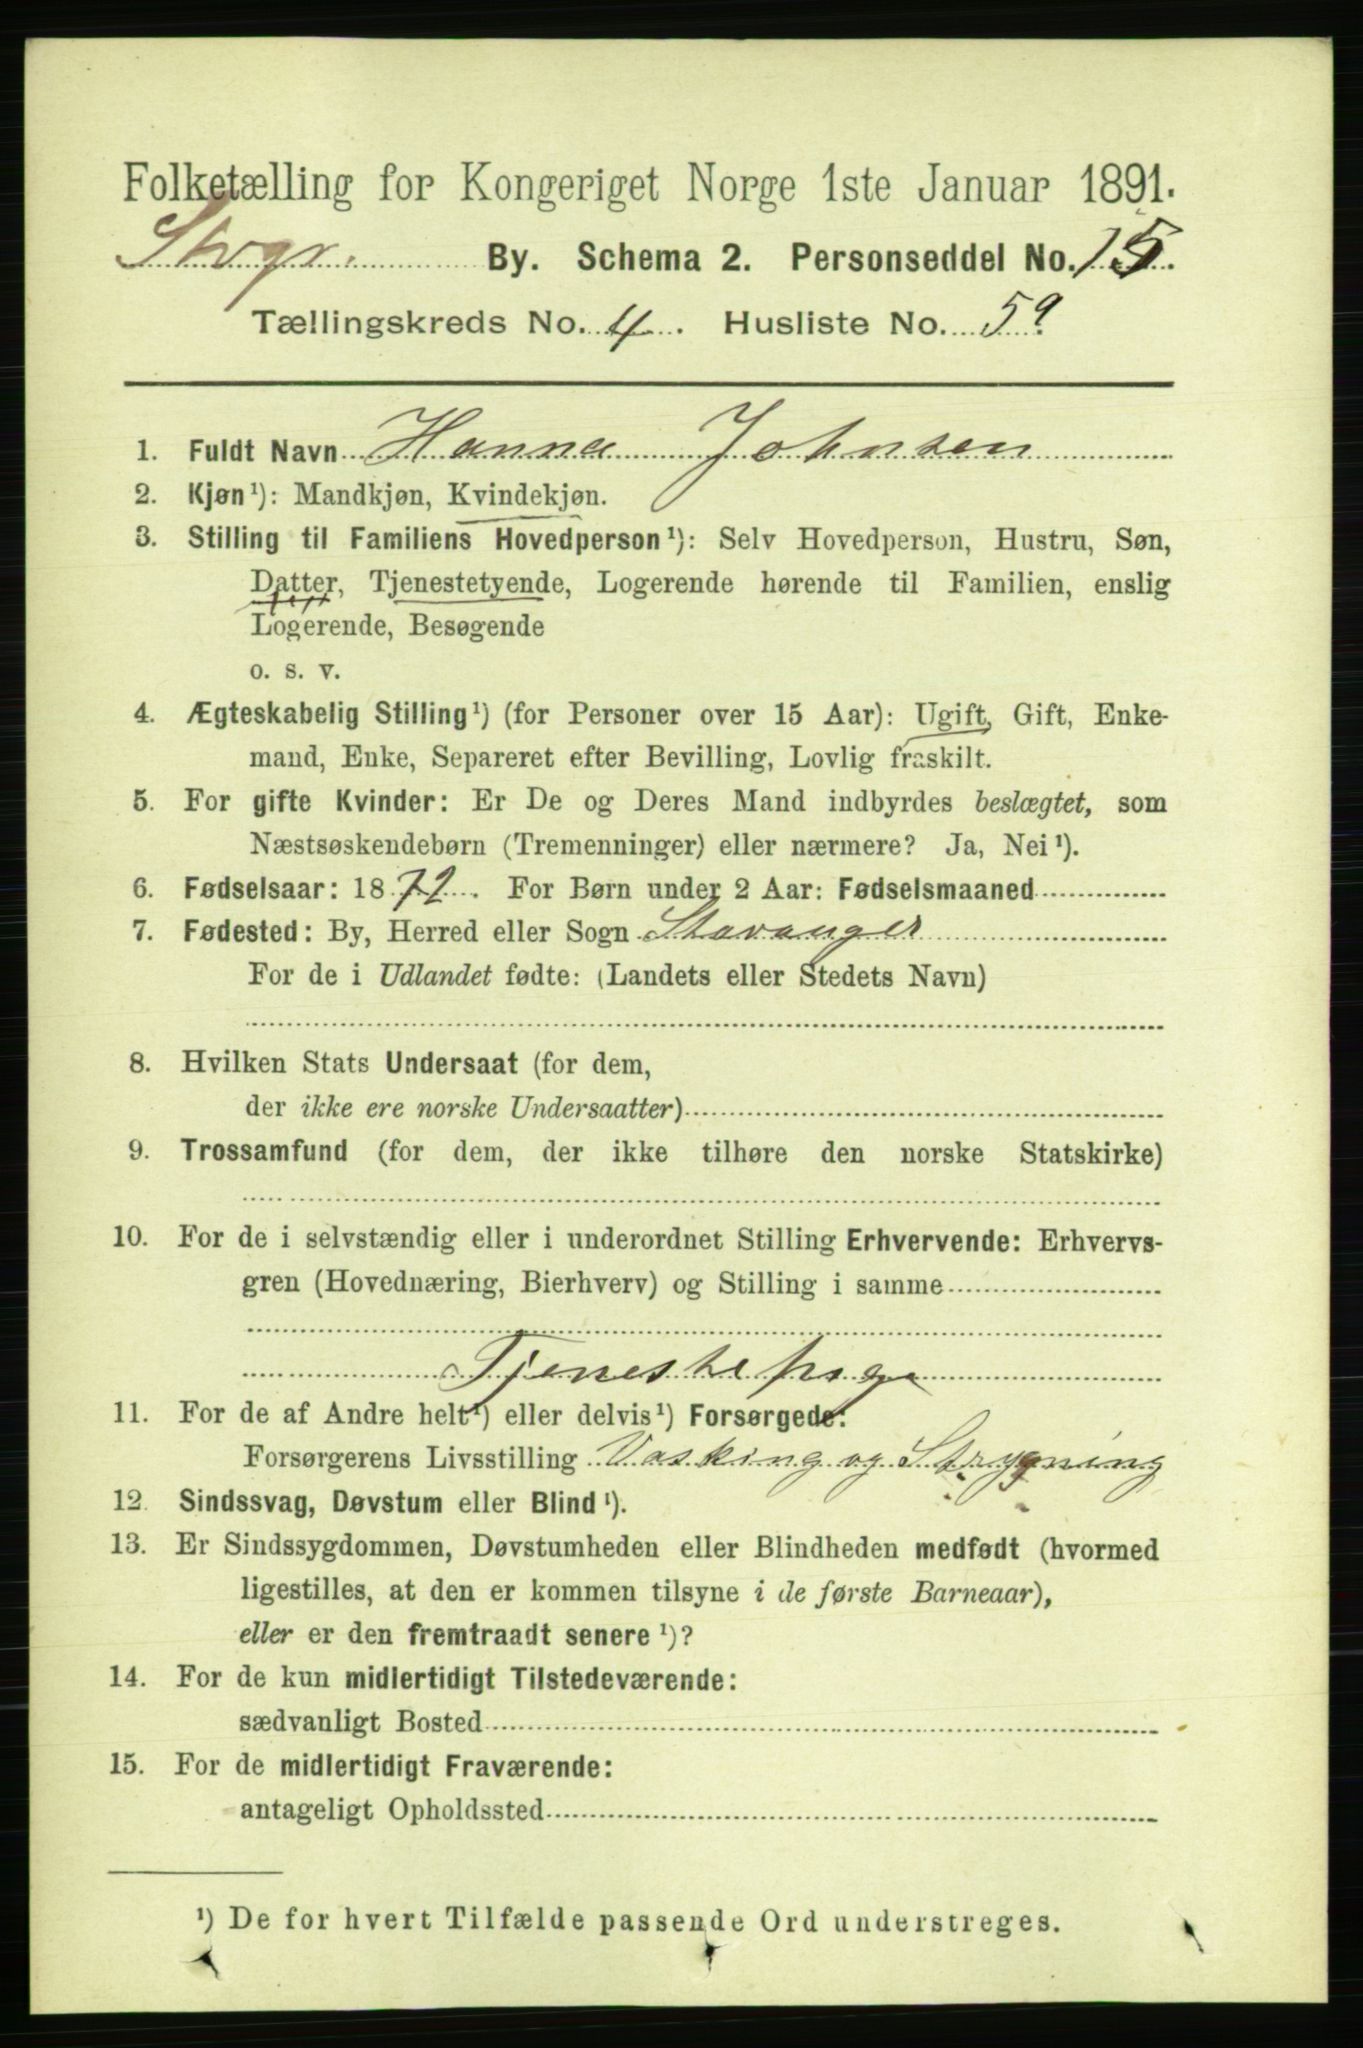 Folketælling for Kongeriget Norge 1ste Januar 1891.
Stvgr. By. Schema 2. Personseddel No. 15.
Tællingskreds No. 4. Husliste No. 59
1. Fuldt Navn Hanna Johnsen
2. Kjøn¹): Mandkjøn, Kvindekjøn.
3. Stilling til Familiens Hovedperson¹): Selv Hovedperson, Hustru, Søn,
Datter, Tjenestetyende, Logerende hørende til Familien, enslig
Logerende, Besøgende
o. s. v.
4. Ægteskabelig Stilling¹) (for Personer over 15 Aar): Ugift, Gift, Enke-
mand, Enke, Separeret efter Bevilling, Lovlig fraskilt.
5. For gifte Kvinder: Er De og Deres Mand indbyrdes beslægtet, som
Næstsøskendebørn (Tremenninger) eller nærmere? Ja, Nei¹).
6. Fødselsaar: 1872. For Børn under 2 Aar: Fødselsmaaned
7. Fødested: By, Herred eller Sogn Stavanger
For de i Udlandet fødte: (Landets eller Stedets Navn)
8. Hvilken Stats Undersaat (for dem,
der ikke ere norske Undersaatter)
9. Trossamfund (for dem, der ikke tilhøre den norske Statskirke)
10. For de i selvstændig eller i underordnet Stilling Erhvervende: Erhvervs-
gren (Hovednæring, Bierhverv) og Stilling i samme
Tjenestepige
11. For de af Andre helt¹) eller delvis¹) Forsørgede:
Forsørgerens Livsstilling Vasking og Strygning
12. Sindssvag, Døvstum eller Blind¹).
13. Er Sindssygdommen, Døvstumheden eller Blindheden medfødt (hvormed
ligestilles, at den er kommen tilsyne i de første Barneaar),
eller er den fremtraadt senere¹)?
14. For de kun midlertidigt Tilstedeværende:
sædvanligt Bosted
15. For de midlertidigt Fraværende:
antageligt Opholdssted
¹) De for hvert Tilfælde passende Ord understreges.